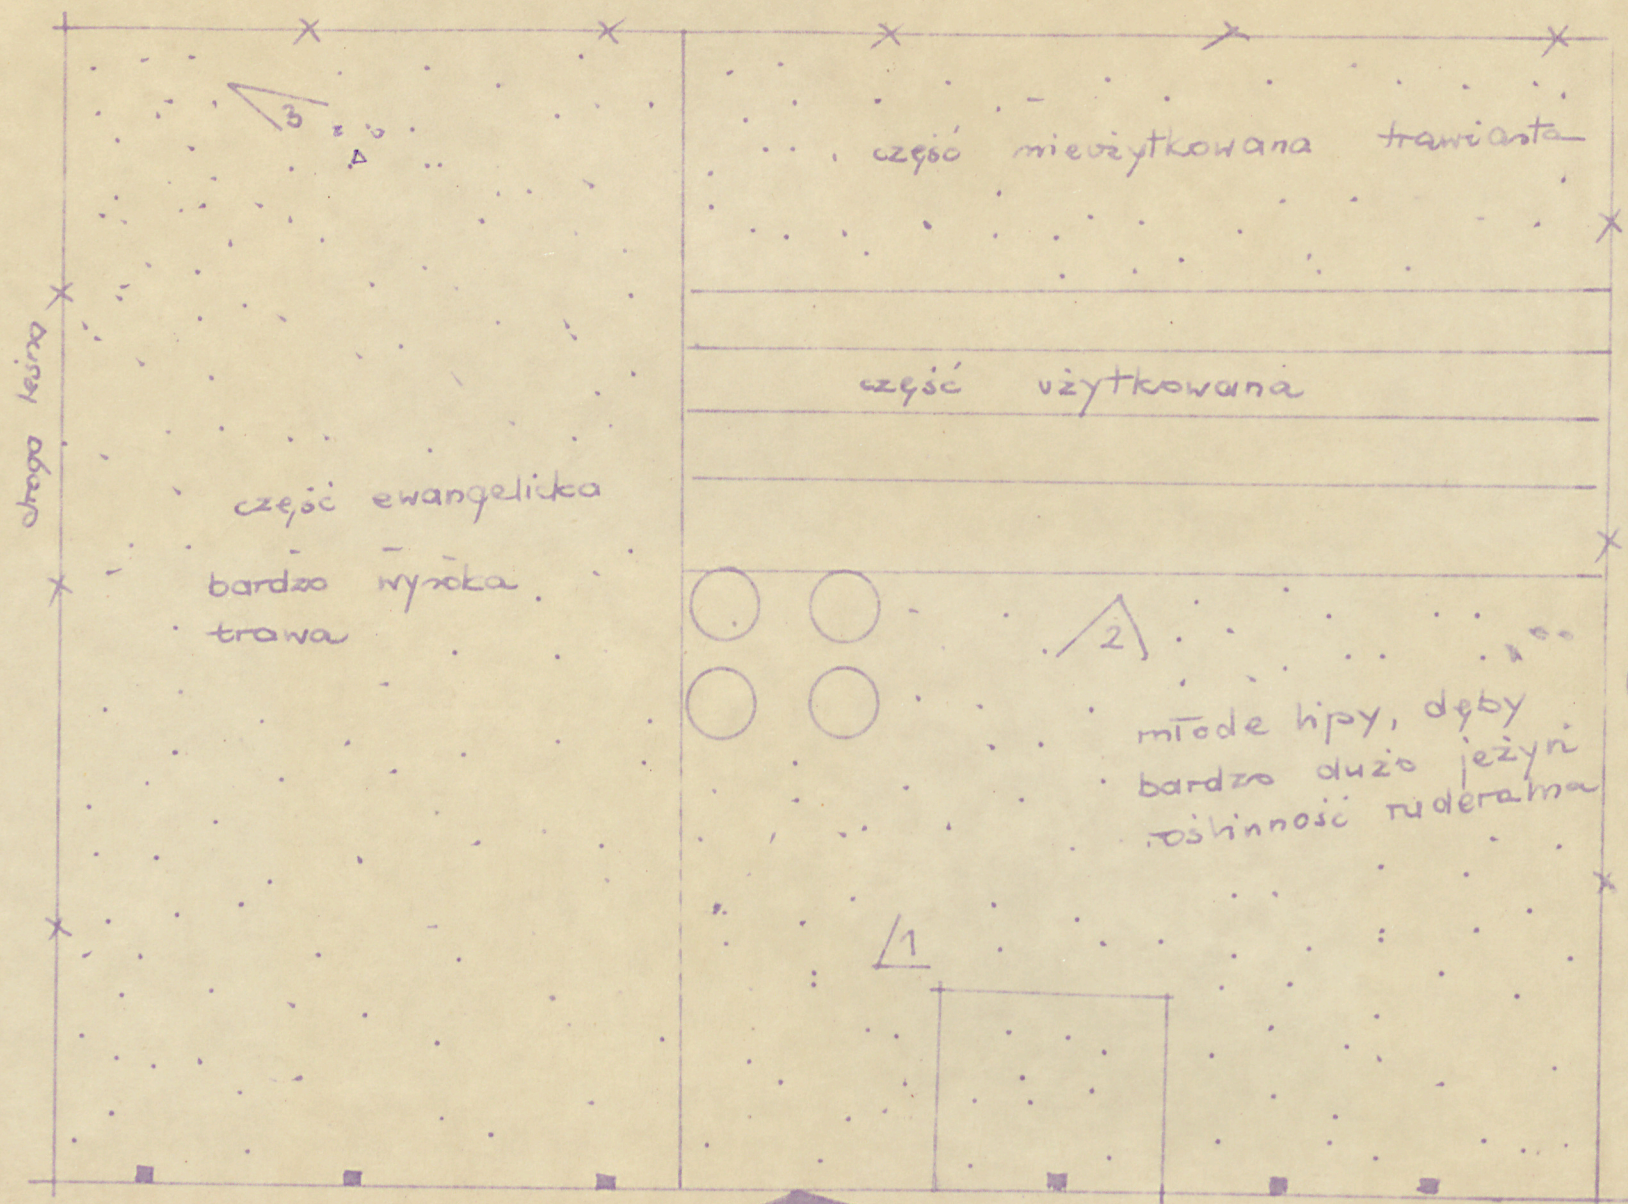 3
część nieużytkowana trawiasta
część użytkowana
droga leśna
część ewangelicka
bardzo wysoka
trawa
2
młode lipy, dęby
bardzo dużo jeżyn
roślinność ruderalna
1